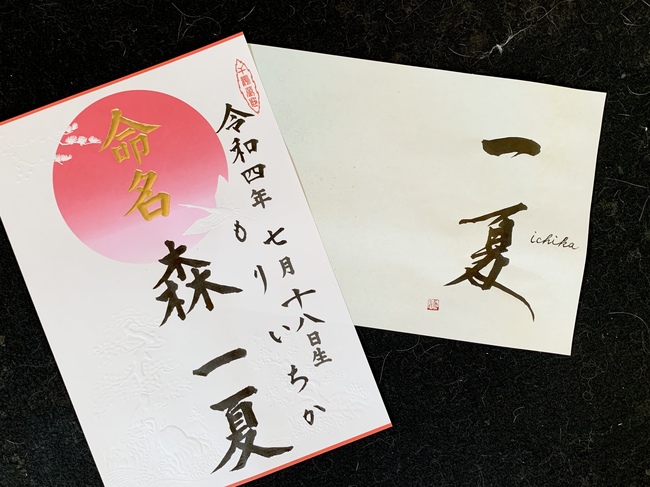 命名
令和四年
七月十八日生
もりいちか
森一夏
一夏
ichika